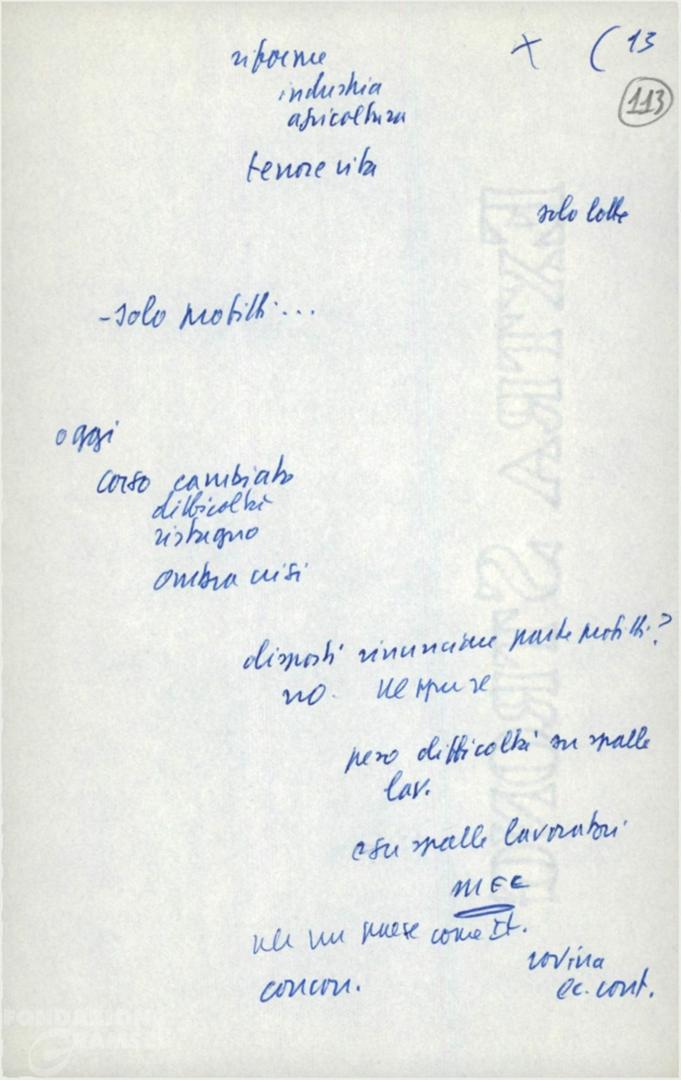 + ( 13
113
riforme
industria
agricoltura
tenore vita
solo lotte
- solo profitti...
oggi
corso cambiato
difficoltà
ristagno
ombra crisi
disposti rinunciare parte profitti?
no. neppure
peso difficoltà su spalle
lav.
e su spalle lavoratori
MEC
un paese come It.
rovina
concorr.
ec. cont.
EXTRA STRONG
FONDAZIONE
GRAMSCI